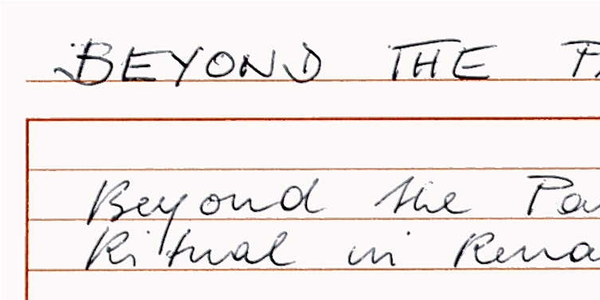 BEYOND THE PA
Beyond the Pa
Ritual in Rena